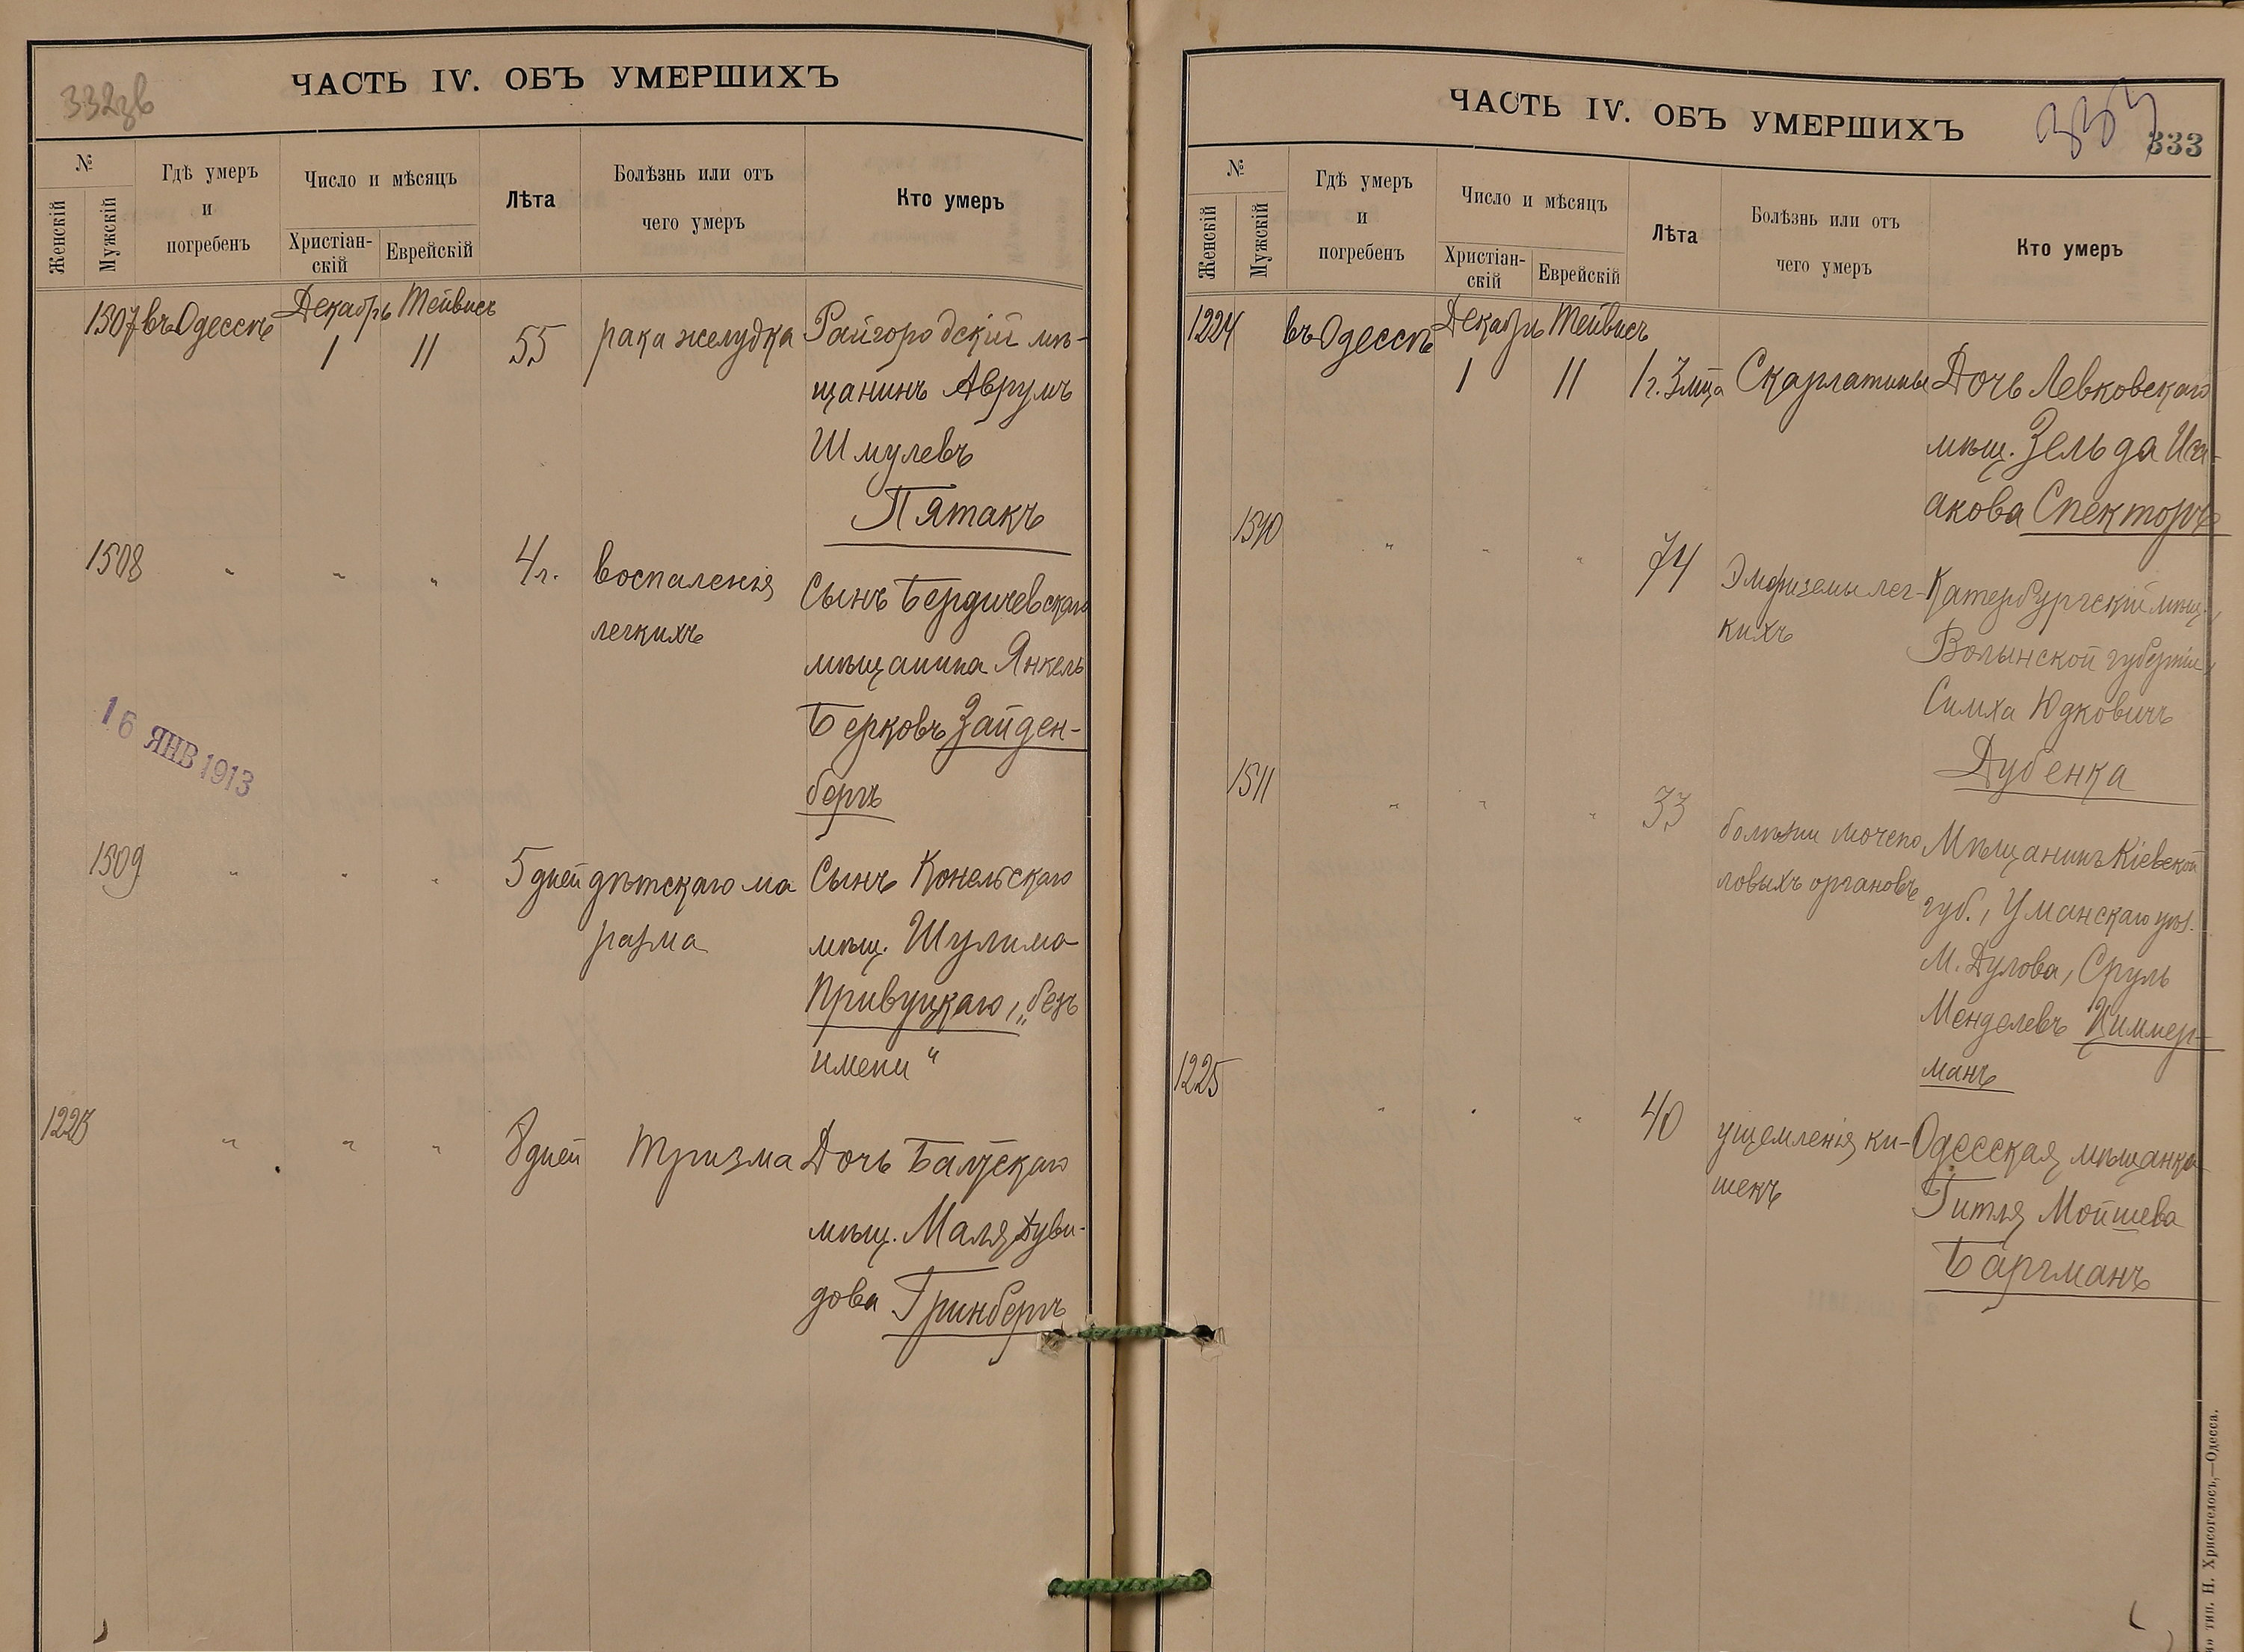 332зв
ЧАСТЬ IV. ОБЪ УМЕРШИХЪ
№
Женскій
Мужскій
Гдѣ умеръ
и
погребенъ
Число и мѣсяцъ
Христіан-
скій
Еврейскій
Лѣта
Болѣзнь или отъ
чего умеръ
Кто умеръ
1507 въ Одессѣ Декабрь Тейвисъ
1 11 55 рака желудка Райгородскій мѣ-
щанинъ Аврумъ
Шмулевъ
Пятакъ
1508 " " " 4 г. воспаленія Сынъ Бердичевскаго
легкихъ мѣщанина Янкель
Берковъ Зайден-
бергъ
16 ЯНВ 1913
1509 " " " 5 дней дѣтскаго ма Сынъ Конельскаго
разма мѣщ. Шулима
Привуцкаго, „безъ
имени"
1223 " " " 8 дней тризма Дочь Балтскаго
мѣщ. Маля Дуви-
дова Гринбергъ
ЧАСТЬ IV. ОБЪ УМЕРШИХЪ
333
333
№
Женскій
Мужскій
Гдѣ умеръ
и
погребенъ
Число и мѣсяцъ
Христіан-
скій
Еврейскій
Лѣта
Болѣзнь или отъ
чего умеръ
Кто умеръ
1224 въ Одессѣ Декабрь Тейвисъ
1 11 1 г. 3 мца Скарлатины Дочь Левковскаго
мѣщ. Зельда Иса-
акова Спекторъ
1510 " " " 74 Эмфиземы лег- Катербургскій мѣщ.,
кихъ Волынской губерніи,
Симха Юдковичъ
Дубенка
1511 " " " 33 болѣзни мочепо Мѣщанинъ Кіевской
ловыхъ органовъ губ., Уманскаго уѣз.
М. Дулова, Сруль
Менделевъ Циммер-
манъ
1225 " " " 40 ущемленія ки- Одесская мѣщанка
шекъ Гитля Мойшева
Баргманъ
тип. Н. Хрисогелосъ,—Одесса.